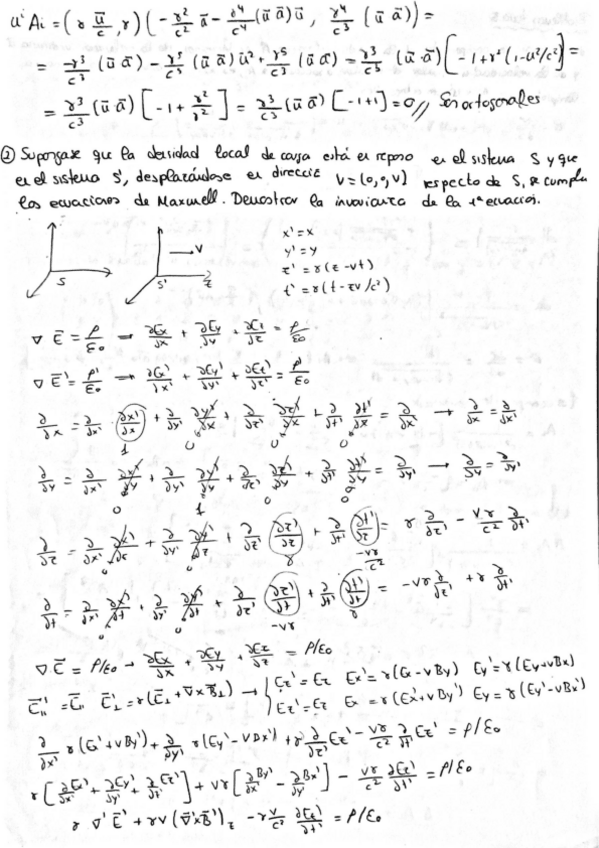 uⁱAi = (γ ū/c, γ) (-γ²/c² ā - γ⁴/c⁴ (ū ā) ū, γ⁴/c³ (ū ā)) =
= -γ³/c³ (ū ā) - γ⁵/c⁵ (ū ā) u² + γ⁵/c³ (ū ā) = γ³/c³ (ū·ā) [-1+γ²(1-u²/c²)] =
= γ³/c³ (ū·ā) [-1 + γ²/γ²] = γ³/c³ (ū ā) [-1+1] = 0 // Son ortogonales
② Supongase que la densidad local de carga está en reposo en el sistema S y que
en el sistema S', desplazándose en dirección V=(0,0,V) respecto de S, se cumplen
las ecuaciones de Maxwell. Demostrar la invarianza de la 1ª ecuación.
x' = x
y' = y
z' = γ(z-vt)
t' = γ(t-zv/c²)
S S' v z
∇ Ē = ρ/ε₀ → ∂Ex/∂x + ∂Ey/∂y + ∂Ez/∂z = ρ/ε₀
∇ Ē' = ρ'/ε₀ → ∂Ex'/∂x' + ∂Ey'/∂y' + ∂Ez'/∂z' = ρ'/ε₀
∂/∂x = ∂/∂x' ∂x'/∂x + ∂/∂y' ∂y'/∂x + ∂/∂z' ∂z'/∂x + ∂/∂t' ∂t'/∂x = ∂/∂x' → ∂/∂x = ∂/∂x'
1 0 0 0
∂/∂y = ∂/∂x' ∂x'/∂y + ∂/∂y' ∂y'/∂y + ∂/∂z' ∂z'/∂y + ∂/∂t' ∂t'/∂y = ∂/∂y' → ∂/∂y = ∂/∂y'
0 1 0 0
∂/∂z = ∂/∂x' ∂x'/∂z + ∂/∂y' ∂y'/∂z + ∂/∂z' ∂z'/∂z + ∂/∂t' ∂t'/∂z = γ ∂/∂z' - vγ/c² ∂/∂t'
0 0 γ -vγ/c²
∂/∂t = ∂/∂x' ∂x'/∂t + ∂/∂y' ∂y'/∂t + ∂/∂z' ∂z'/∂t + ∂/∂t' ∂t'/∂t = -vγ ∂/∂z' + γ ∂/∂t'
0 0 -vγ γ
∇ Ē = ρ/ε₀ → ∂Ex/∂x + ∂Ey/∂y + ∂Ez/∂z = ρ/ε₀
Ē'∥ = Ē∥ Ē'⊥ = γ(Ē⊥ + v̄ × B̄⊥) → { Ez' = Ez Ex' = γ(Ex - vBy) Ey' = γ(Ey + vBx)
Ez' = Ez Ex = γ(Ex' + vBy') Ey = γ(Ey' - vBx')
∂/∂x' γ(Ex' + vBy') + ∂/∂y' γ(Ey' - vBx') + γ ∂/∂z' Ez' - vγ/c² ∂/∂t' Ez' = ρ/ε₀
γ[∂Ex'/∂x' + ∂Ey'/∂y' + ∂Ez'/∂z'] + vγ[∂By'/∂x' - ∂Bx'/∂y'] - vγ/c² ∂Ez'/∂t' = ρ/ε₀
γ ∇' Ē' + γv (∇̄' × B̄')z - γv/c² ∂Ez'/∂t' = ρ/ε₀